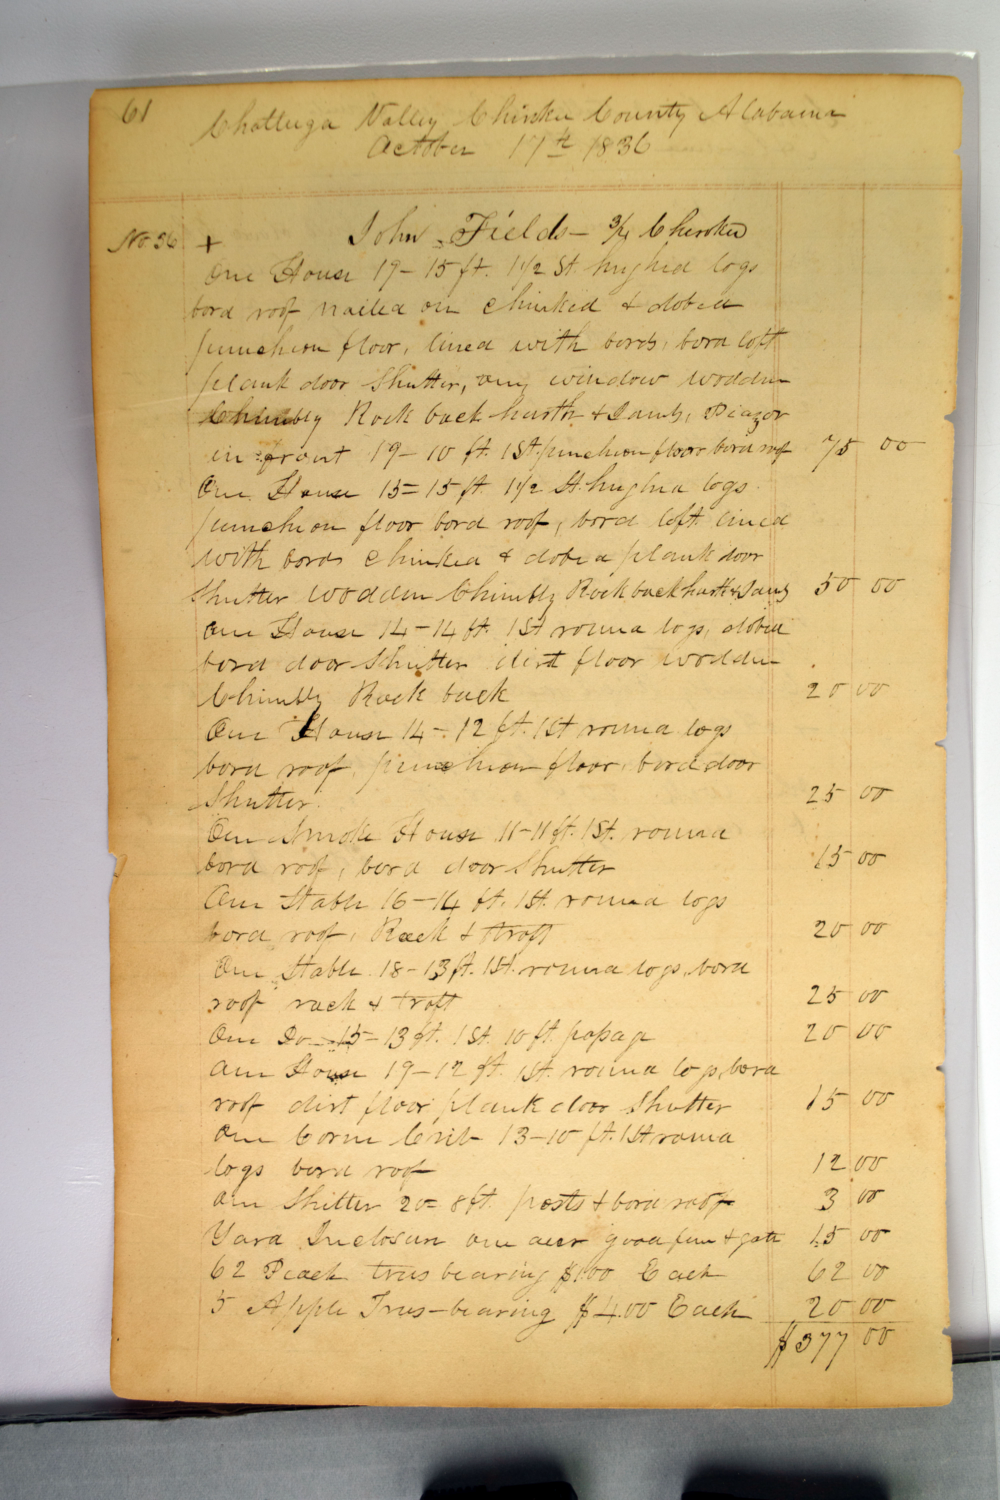 61
Chattuga Valley Chirkee County Alabama
October 17th 1836
No 56 + John Fields - 3/4 Cherokee
One House 19-15 ft. 1 1/2 St. hughed logs
bord roof nailed on chinked & dobed
puncheon floor, lined with bords, bord loft
plank door Shutter, one window wodden
Chimbly Rock back harth & Jambs, Piazor
in front 19-10 ft. 1 St. puncheon floor bord roof 75 00
One House 15=15 ft. 1 1/2 St. hughed logs
puncheon floor bord roof, bord loft lined
with bords chinked & dobed plank door
Shutter wodden Chimbly Rock back harth & Jambs 50 00
One House 14-14 ft. 1 St round logs, dobed
bord door Shutter dirt floor wodden
Chimbly Rock back 20 00
One House 14-12 ft. 1 St round logs
bord roof, puncheon floor, bord door
Shutter. 25 00
One Smoke House 11-11 ft. 1 St. round
bord roof, bord door Shutter 15 00
One Stable 16-14 ft. 1 St. round logs
bord roof, Rack & troft 20 00
One Stable 18-13 ft. 1 St. round logs, bord
roof rack & troft 25 00
One Do 15-13 ft. 1 St. 10 ft. pasage 20 00
One House 19-12 ft. 1 St. round logs, bord
roof dirt floor, plank door Shutter 15 00
One Corne Crib 13-10 ft. 1 St round
logs bord roof 12 00
One Shelter 20=8 ft. posts & bord roof 3 00
Yard Inclosure one acer good fenc & gate 15 00
62 Peach trees bearing $1.00 Each 62 00
5 Apple Trees-bearing $4.00 Each 20 00
$377 00